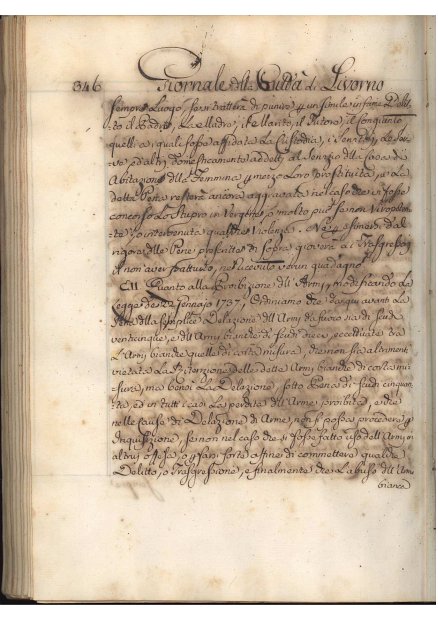 346 Giornale della Città di Livorno
sempre Luogo sarà trattera di punire un simile infame Delit-
to il Padre, La Madre, il Marito, il Tutore, il congiunto
quelli a i quali fosse affidata La Custodia, i Servitori, Le Ser-
ve, ed altri domesticamente addetti al servizio della Casa di
Abitazione della Femmina per mezzo Loro prostituita, e La
detta Pena resterà ancora aggravata nel caso che vi fosse
concorso Lo Stupro in Vergine, o molto più se non
intervenuta qualche Violenza. Né per esimersi dal
rigore delle Pene prescritte di sopra gioverà a i Trasgressori
il non aver pattuito, né ricevuto verun guadagno
Quanto alla Proibizione dell'Armi, modificando La
Legge de 22 Gennajo 1737. Ordiniamo che da qui avanti La
Pena della semplice Delazione dell'Armi da fuoco sia di scudi
venticinque, e dell'Armi bianche di scudi dieci, eccettuate da
L'Armi bianche quelle di corta misura, che non sia altrimenti
vietata La Ritenzione delle dette Armi bianche di corta mi-
sura, ma bensì La Delazione, sotto Pena di scudi cinquan-
ta, ed in tutti i casi La perdita dell'Armi proibite, e che
nelle cause di Delazione di Arme, non si possa procedere per
Inquisizione, se non nel caso che si fosse fatto uso dell'Armi in
altrui offesa, o per farsi forte a fine di commettere qualche
Delitto, o Trasgressione, e finalmente che L'abuso dell'Armi
bianca